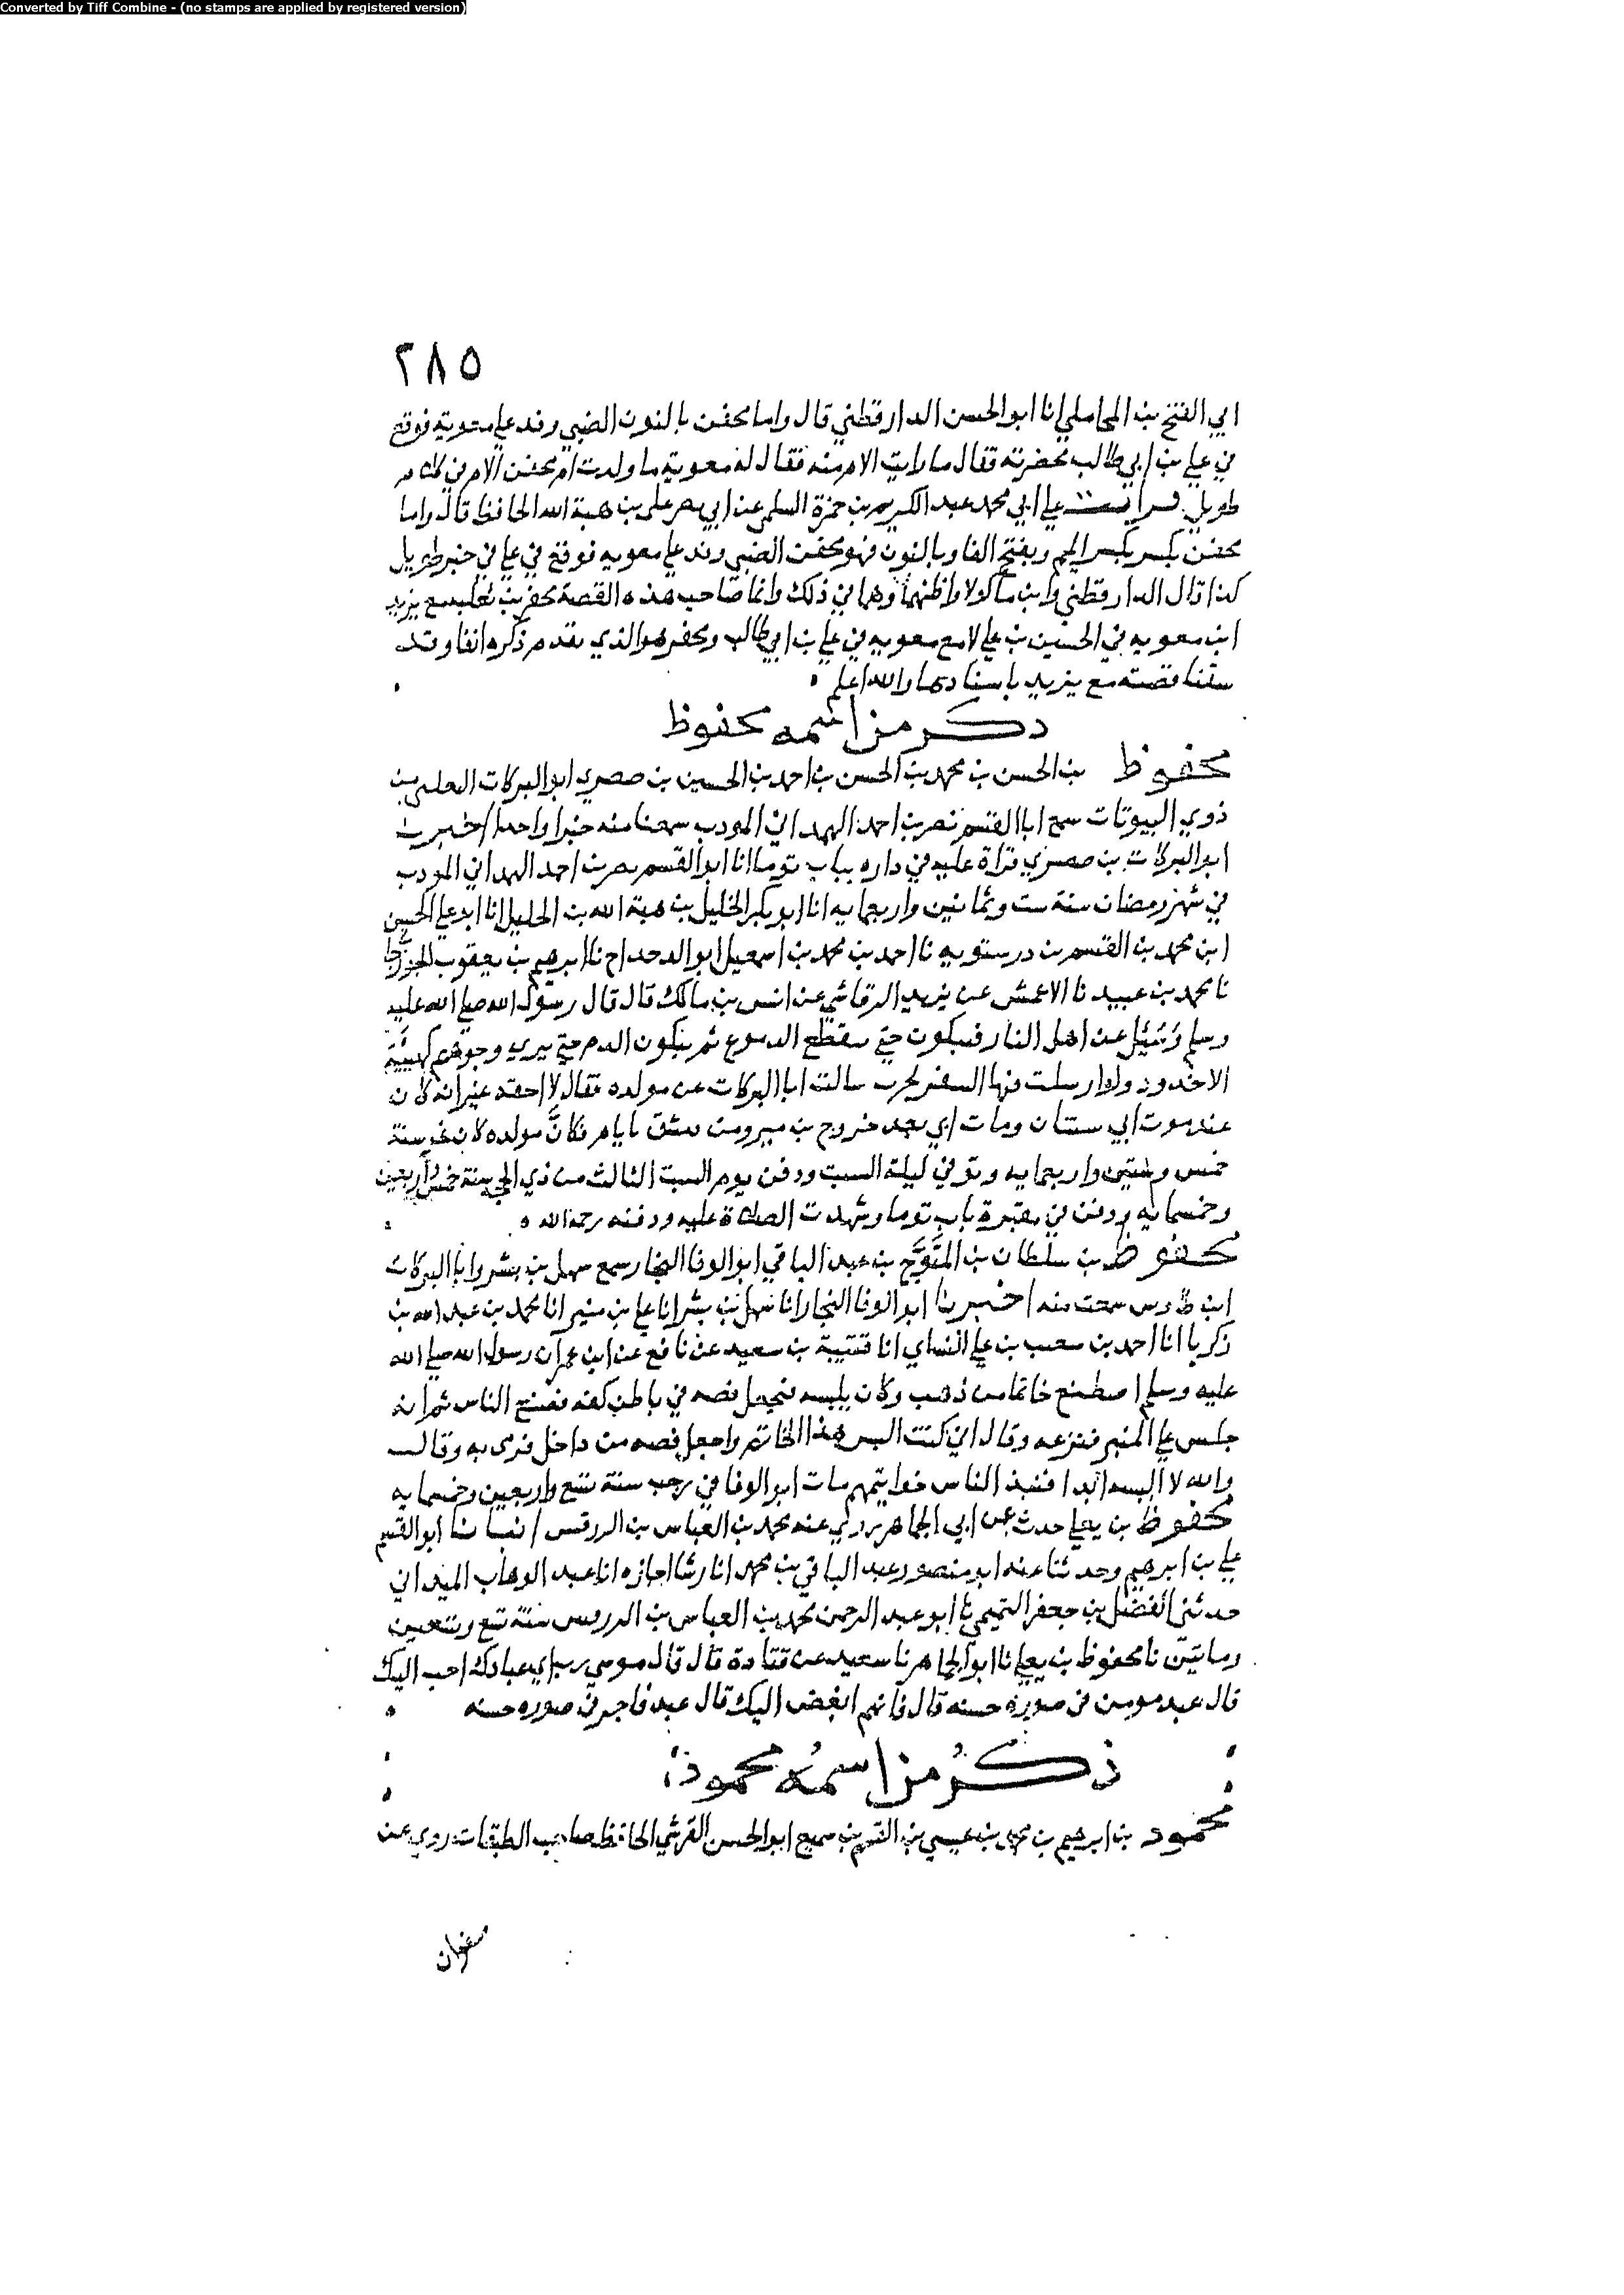 Converted by Tiff Combine - (no stamps are applied by registered version)
٢٨٥
ابي الفتح بن المحاملي انا ابو الحسن الدارقطني قال واما محفن بالنون الضبي وفد علي معوية فوقع
في علي بن ابي طالب بحضرته فقال ما رايت الامر منه فقال له معوية ما ولدت ام محفن الامر في كلام
طويل قرات علي ابي محمد عبد الكريم بن حمزة السلمي عن ابي نصر علي بن هبة الله الحافظ قال واما
محفن بكسر الميم وبفتح الفا وبالنون فهو محفن الضبي وفد علي معويه فوقع في علي في خبر طويل
كذا قال الدارقطني وابن ماكولا واظنهما وهما في ذلك وانما صاحب هذه القصة محفز بن ثعلبه مع يزيد
ابن معويه في الحسين بن علي لا مع معويه في علي بن ابي طالب ومحفز هو الذي تقدم ذكره انفا وقد
سقنا قصته مع يزيد باسنادها والله اعلم
ذكر من اسمه محفوظ
محفوظ بن الحسن بن محمد بن الحسن بن احمد بن الحسين بن صصري ابو البركات التغلبي من
ذوي البيوتات سمع ابا القسم نصر بن احمد الهمداني المودب سمعنا منه خبرا واحدا اخبرنا
ابو البركات بن صصري قراة عليه في داره بباب توما انا ابو القسم نصر بن احمد الهمداني المودب
في شهر رمضان سنة ست وثمانين واربعمايه انا ابو بكر الخليل بن هبة الله بن الخليل انا ابو علي الحسن
ابن محمد بن القسم بن درستويه نا احمد بن محمد بن اسمعيل ابو الدحداح نا ابرهيم بن يعقوب الجوزجا
نا محمد بن عبيد نا الاعمش عن يزيد الرقاشي عن انس بن مالك قال قال رسول الله صلي الله عليه
وسلم عن اهل النار فيبكون حتي ينقطع الدموع ثم يبكون الدم حتي يري وجوههم كهيئة
الاخدود ولو ارسلت فيها السفن لجرت سالت ابا البركات عن مولده فقال لا احقه غير انه كان
عند موت ابي سنتان ومات ابي بعد خروج بن من دمشق بايام فكان مولده كان نحو سنة
خمس وستين واربعمايه وتوفي ليلة السبت ودفن يوم السبت الثالث من ذي الحجة سنة خمس واربعين
وخمسمايه ودفن في مقبرة باب توما وشهدت الصلاة عليه ودفنه رحمه الله
محفوظ بن سلطان بن المتوج بن عبد الباقي ابو الوفا النجار سمع سهل بن بشر وابا البركات
ابن طاوس سمعت منه اخبرنا ابو الوفا النجار انا سهل بن بشر انا علي بن منير انا محمد بن عبد الله بن
زكريا انا احمد بن شعيب بن علي النساي انا قتيبة بن سعيد عن نافع عن ابن عمر ان رسول الله صلي الله
عليه وسلم اصطنع خاتما من ذهب وكان يلبسه فيجعل فصه في باطن كفه فصنع الناس ثم انه
جلس علي المنبر فنزعه وقال اني كنت البس هذا الخاتم واجعل فصه من داخل فرمي به وقال
والله لا البسه ابدا فنبذ الناس خواتيمهم مات ابو الوفا في رجب سنة تسع واربعين وخمسمايه
محفوظ بن يعلي حدث عن ابي الجماهر روي عنه محمد بن العباس بن الدرفس انبانا ابو القسم
علي بن ابرهيم وحدثنا عنه ابو منصور عبد الباقي بن محمد انا رشا اجازه انا عبد الوهاب الميداني
حدثني الفضل بن جعفر التميمي نا ابو عبد الرحمن محمد بن العباس بن الدرفس سنة تسع وتسعين
وماتين نا محفوظ بن يعلي نا ابو الجماهر نا سعيد عن قتادة قال قال موسي رب اي عبادك احب اليك
قال عبد مومن في صورة حسنه قال فايهم ابغض اليك قال عبد فاجر في صوره حسنه
ذكر من اسمه محمود
محمود بن ابرهيم بن محمد بن عيسي بن القسم بن سميع ابو الحسن القرشي الحافظ صاحب الطبقات روي عن